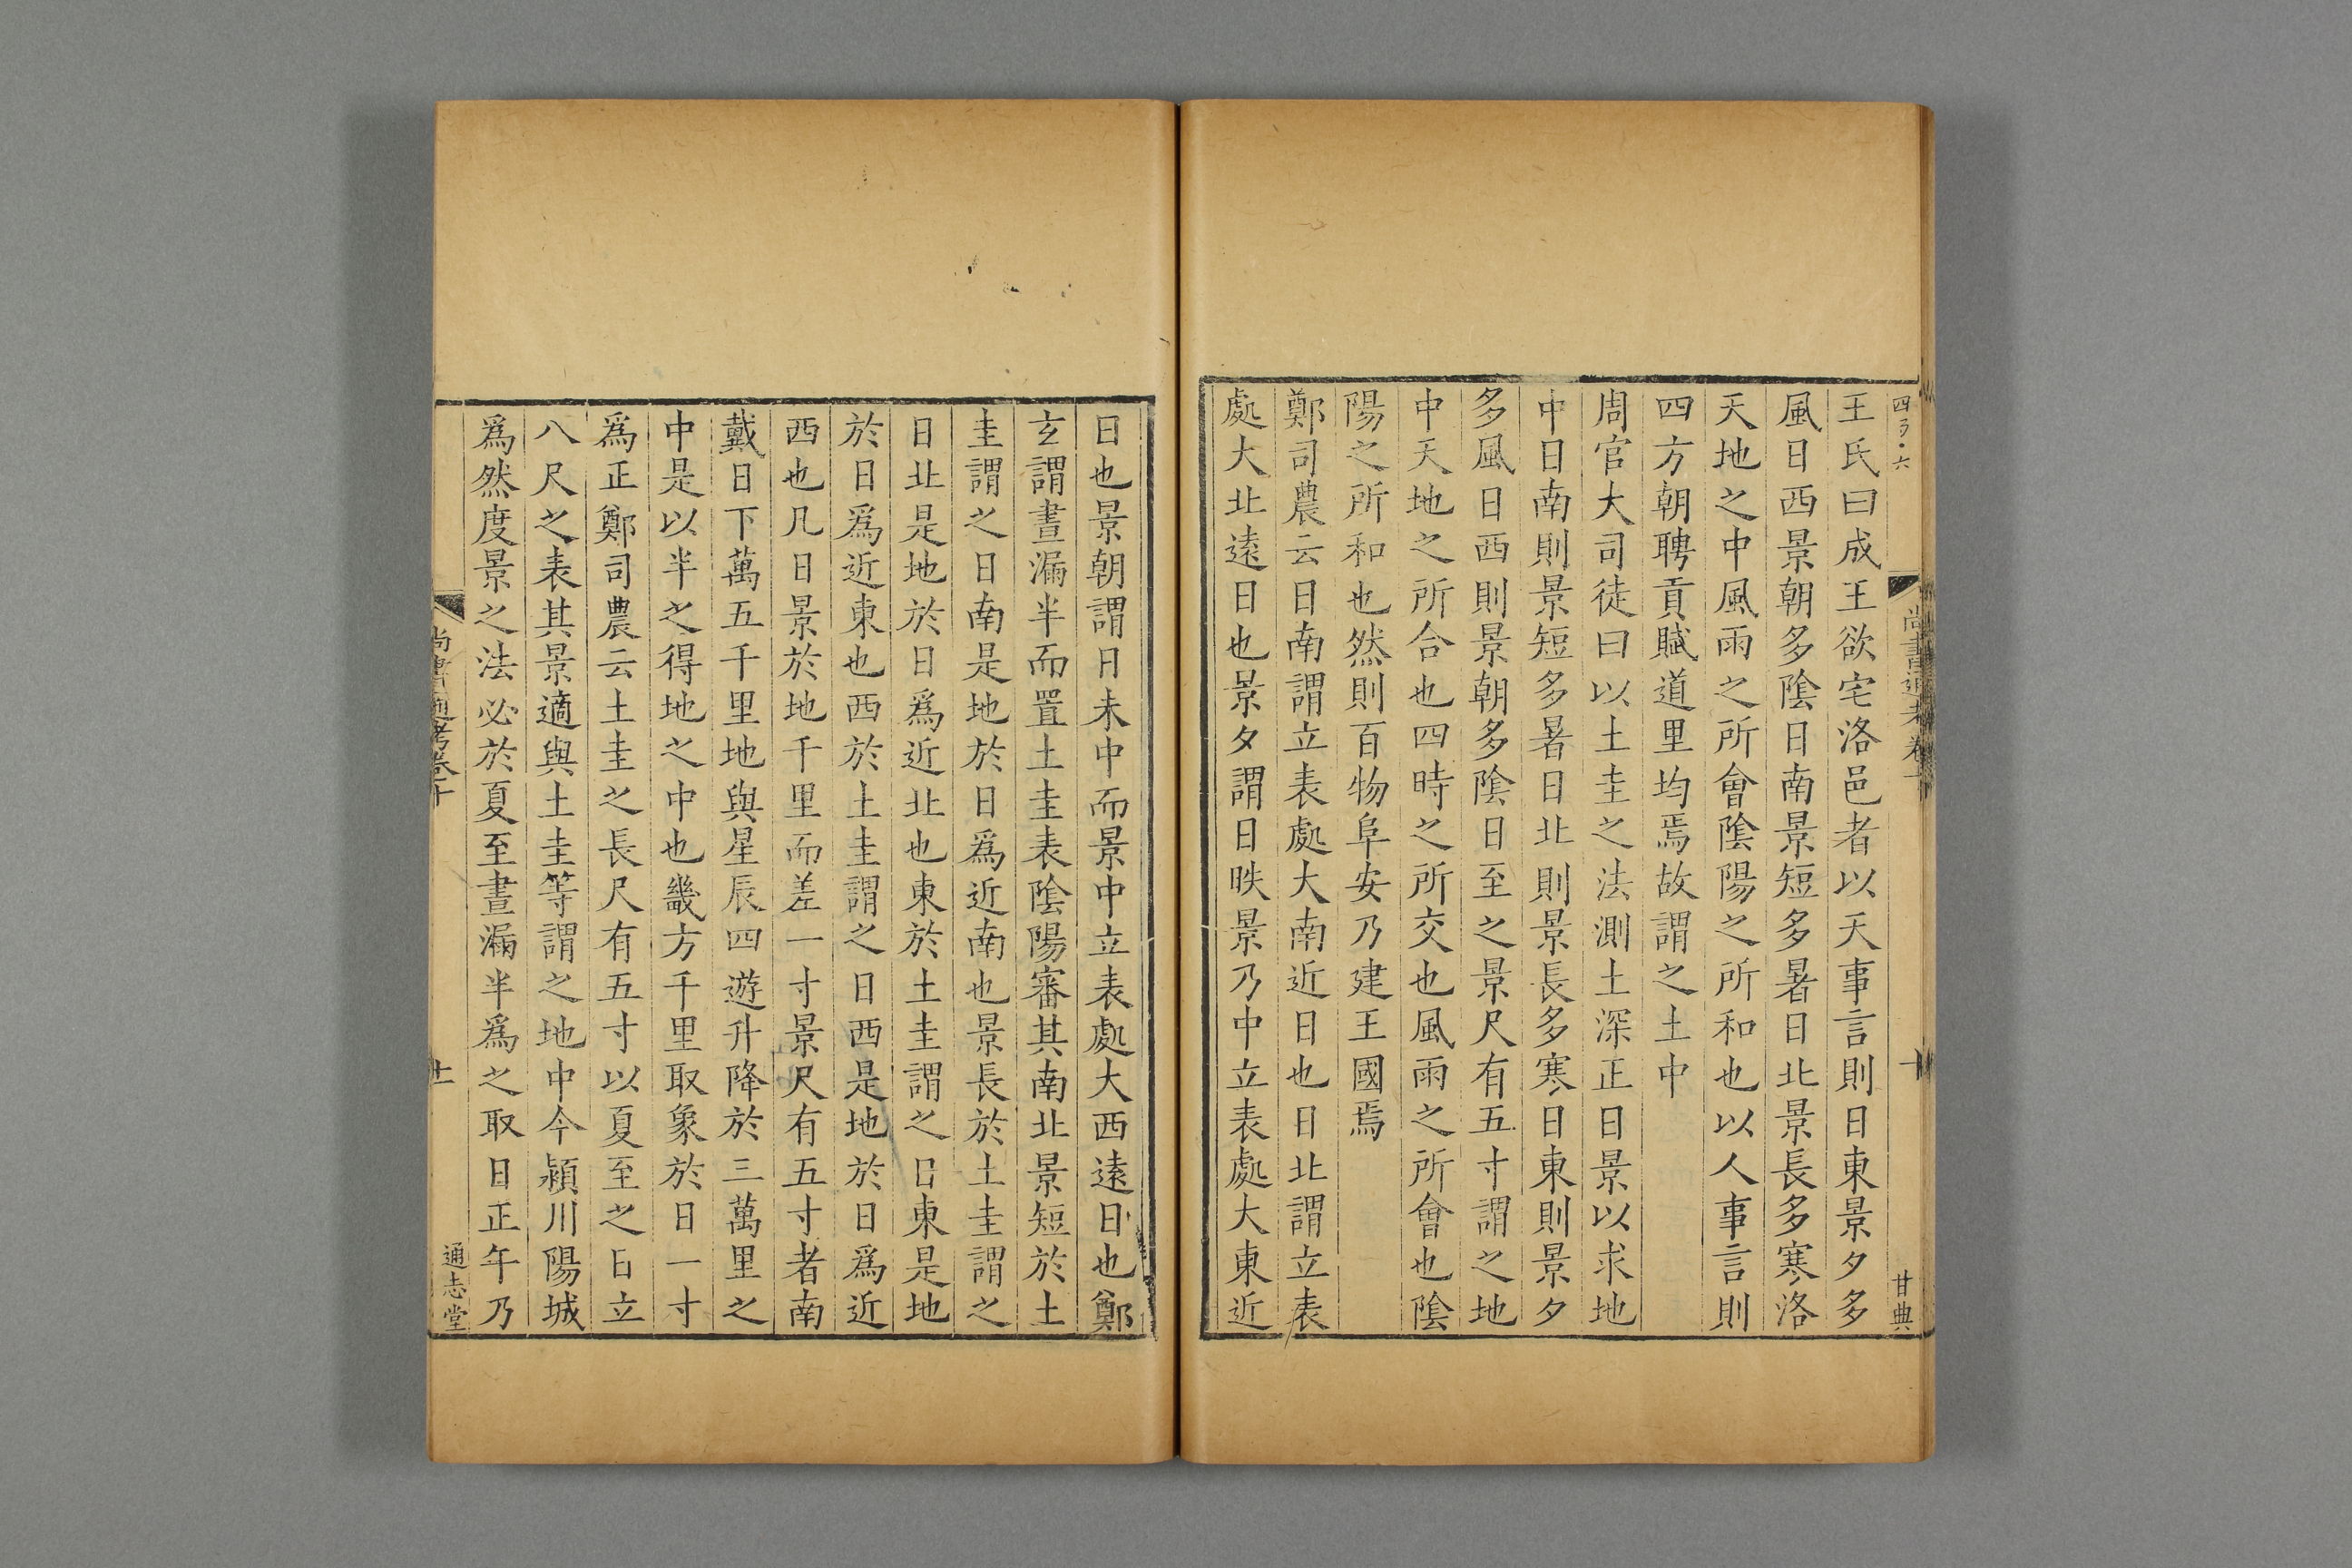 王氏曰成王欲宅洛邑者以天事言則日東景夕多
風日西景朝多陰日南景短多暑日北景長多寒洛
天地之中風雨之所會陰陽之所和也以人事言則
四方朝聘貢賦道里均焉故謂之土中
周官大司徒曰以土圭之法測土深正日景以求地
中日南則景短多暑日北則景長多寒日東則景夕
多風日西則景朝多陰日至之景尺有五寸謂之地
中天地之所合也四時之所交也風雨之所會也陰
陽之所和也然則百物阜安乃建王國焉
鄭司農云日南謂立表處大南近日也日北謂立表
處大北遠日也景夕謂日昳景乃中立表處大東近
日也景朝謂日未中而景中立表處大西遠日也鄭
玄謂晝漏半而置土圭表陰陽審其南北景短於土
圭謂之日南是地於日為近南也景長於土圭謂之
日北是地於日爲近北也東於土圭謂之日東是地
於日爲近東也西於土圭謂之日西是地於日爲近
西也凡日景於地千里而差一寸景尺有五寸者南
戴日下萬五千里地與星辰四遊升降於三萬里之
中是以半之得地之中也畿方千里取象於日一寸
爲正鄭司農云土圭之長尺有五寸以夏至之日立
八尺之表其景適與土圭等謂之地中今潁川陽城
爲然度景之法必於夏至晝漏半爲之取日正午乃
尚書通考卷十
十一
通志堂
尚書通考卷十
十
甘典